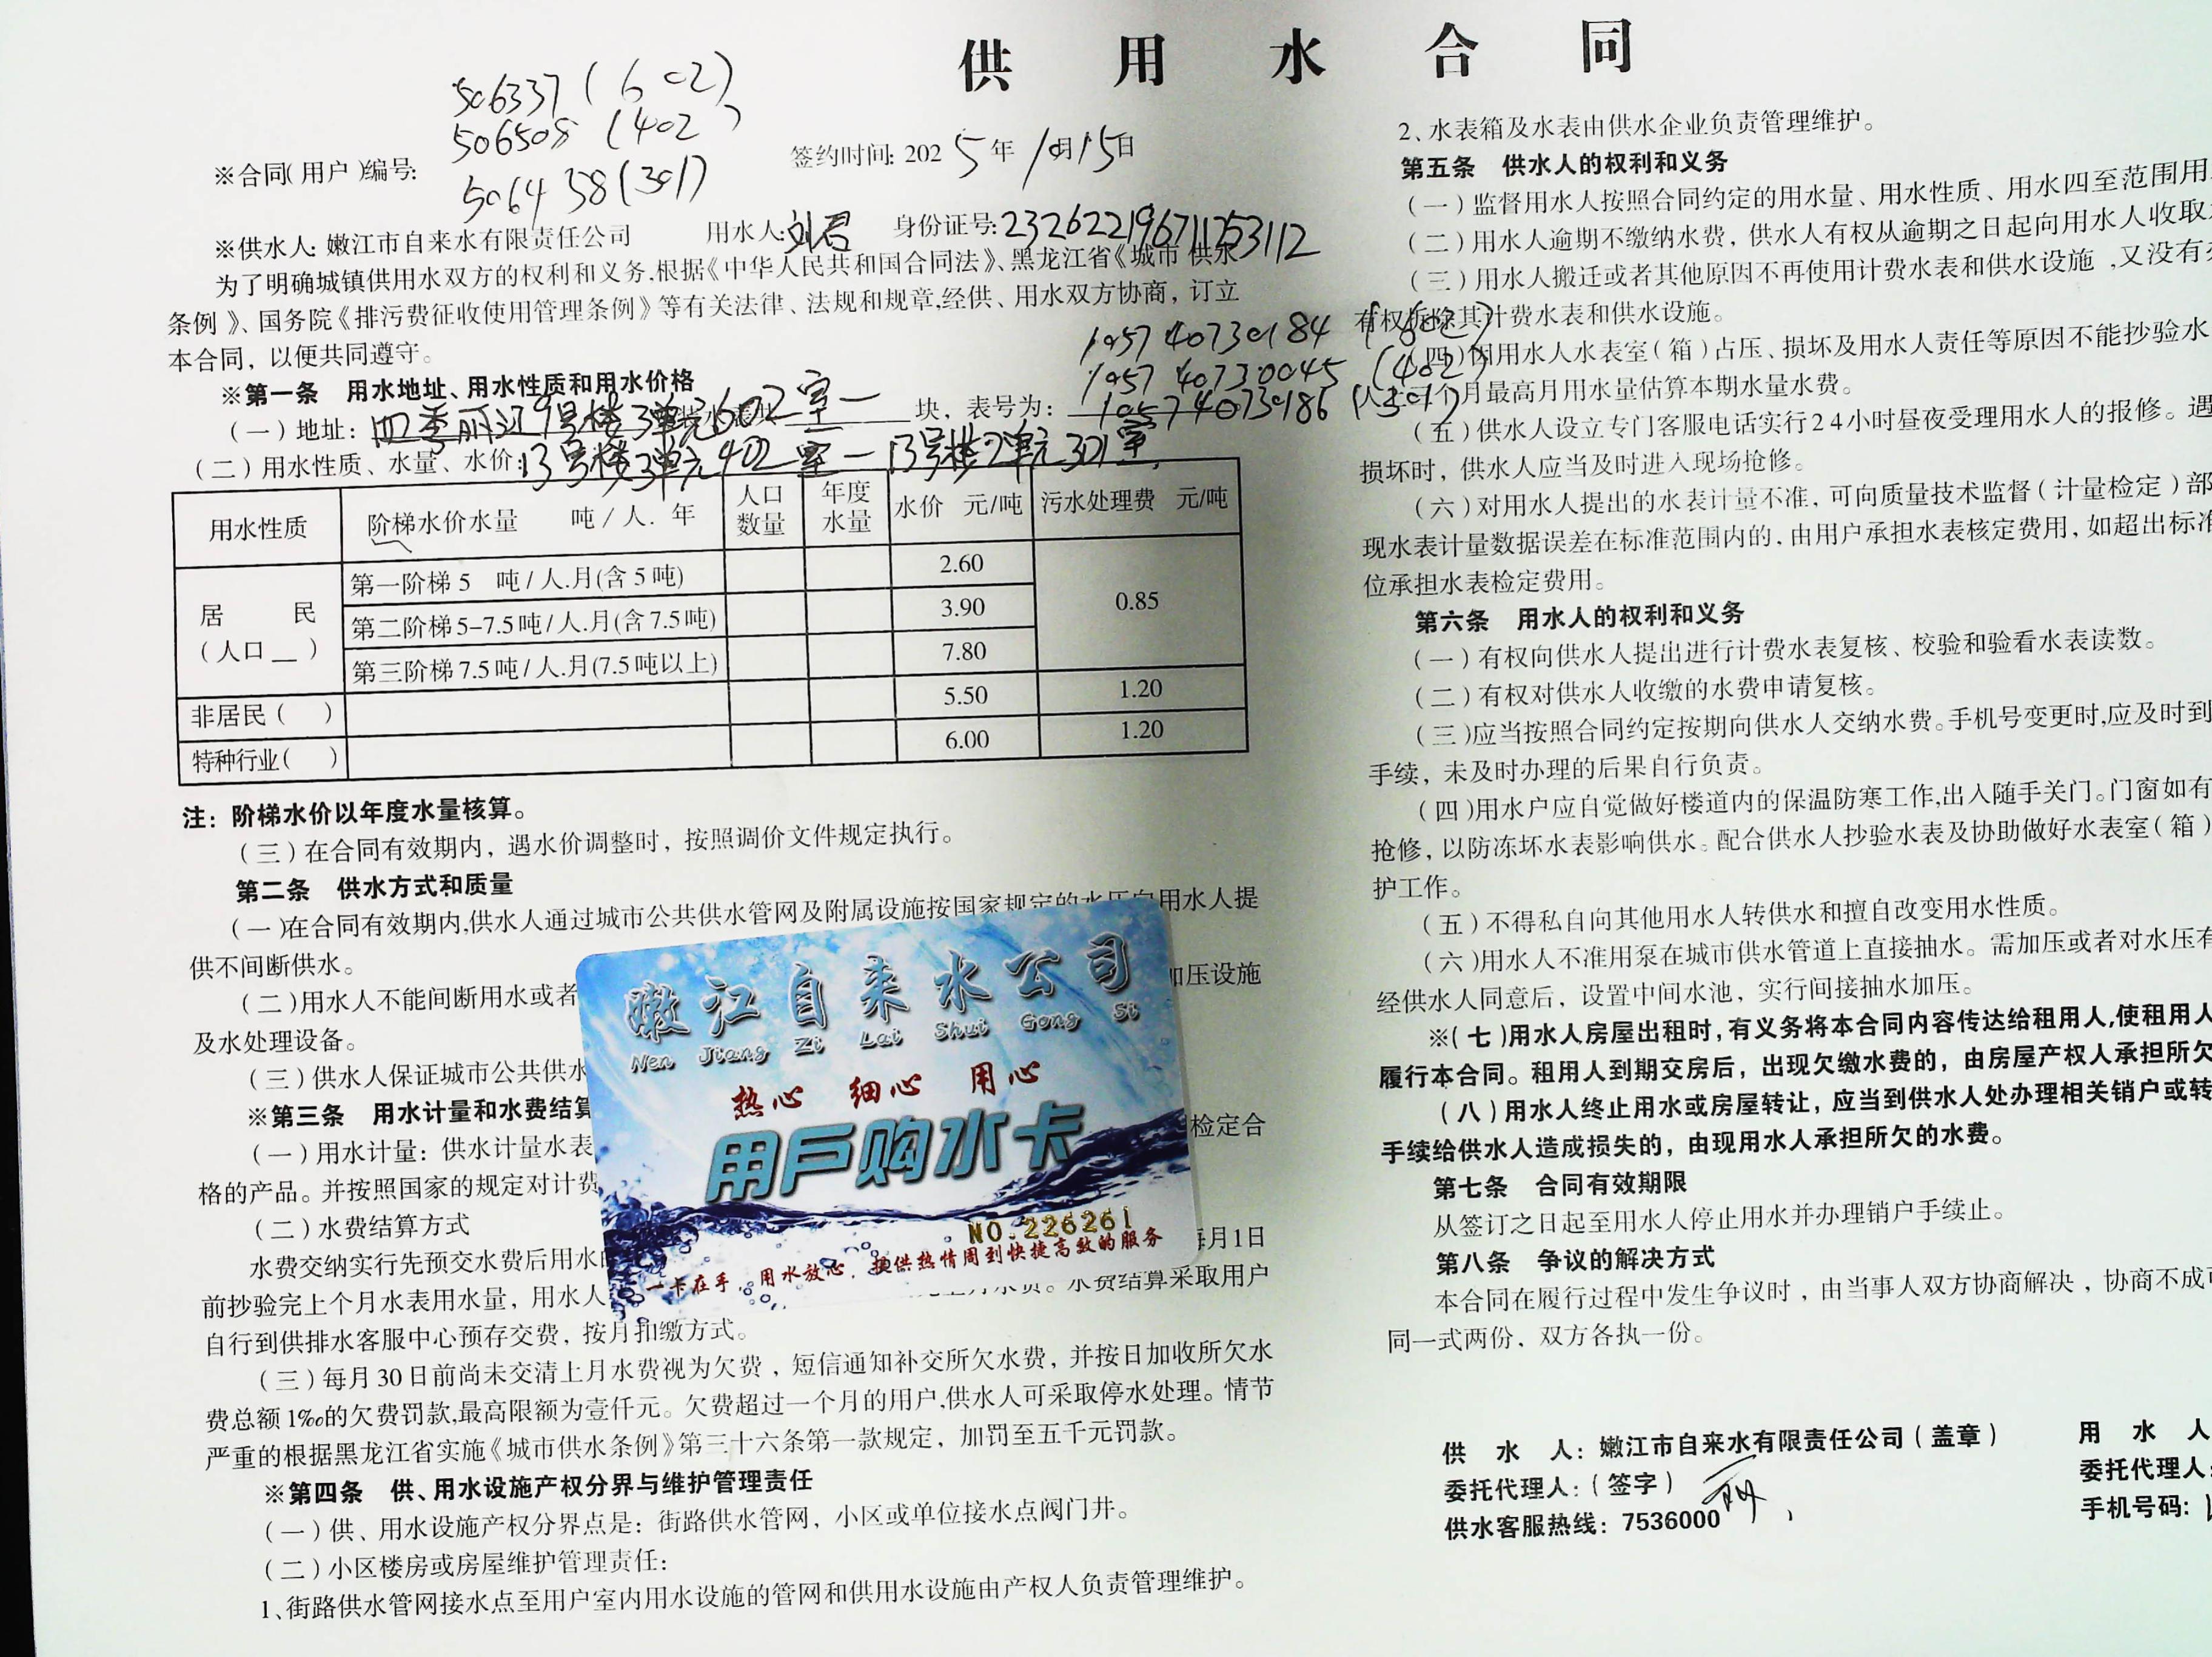 供用水合同
506337(602)
506508(402)
※合同(用户)编号:
506438(301)
签约时间: 2025年10月15日
※供水人: 嫩江市自来水有限责任公司 用水人: 刘君 身份证号:
为了明确城镇供用水双方的权利和义务,根据《中华人民共和国合同法》、黑龙江省《城市供水
条例》、国务院《排污费征收使用管理条例》等有关法律、法规和规章,经供、用水双方协商，订立
本合同，以便共同遵守。
1957 40730184 (602)
1957 40730045 (402)
195740730186 (301)
※第一条 用水地址、用水性质和用水价格
(一)地址: 四季丽江9号楼3单元602室一 块，表号为:
(二)用水性质、水量、水价: 13号楼3单元402室一13号楼2单元301室
用水性质 阶梯水价水量 吨/人.年 人口数量 年度水量 水价 元/吨 污水处理费 元/吨
居民(人口__)
第一阶梯5 吨/人.月(含5吨) 2.60
第二阶梯5-7.5吨/人.月(含7.5吨) 3.90 0.85
第三阶梯7.5吨/人.月(7.5吨以上) 7.80
非居民( ) 5.50 1.20
特种行业( ) 6.00 1.20
注: 阶梯水价以年度水量核算。
(三)在合同有效期内，遇水价调整时，按照调价文件规定执行。
第二条 供水方式和质量
(一)在合同有效期内,供水人通过城市公共供水管网及附属设施按国家规定的水压向用水人提
供不间断供水。
(二)用水人不能间断用水或者 加压设施
及水处理设备。
(三)供水人保证城市公共供水
※第三条 用水计量和水费结算
(一)用水计量: 供水计量水表 检定合
格的产品。并按照国家的规定对计费
(二)水费结算方式
水费交纳实行先预交水费后用水 每月1日
前抄验完上个月水表用水量，用水人 水费结算采取用户
自行到供排水客服中心预存交费，按月扣缴方式。
(三)每月30日前尚未交清上月水费视为欠费，短信通知补交所欠水费，并按日加收所欠水
费总额1‰的欠费罚款,最高限额为壹仟元。欠费超过一个月的用户,供水人可采取停水处理。情节
严重的根据黑龙江省实施《城市供水条例》第三十六条第一款规定，加罚至五千元罚款。
※第四条 供、用水设施产权分界与维护管理责任
(一)供、用水设施产权分界点是: 街路供水管网，小区或单位接水点阀门井。
(二)小区楼房或房屋维护管理责任:
1、街路供水管网接水点至用户室内用水设施的管网和供用水设施由产权人负责管理维护。
嫩江自来水公司
Nen Jiang Zi Lai Shui Gong Si
热心 细心 用心
用戶购水卡
NO.226261
一卡在手，用水放心，提供热情周到快捷高效的服务
2、水表箱及水表由供水企业负责管理维护。
第五条 供水人的权利和义务
(一)监督用水人按照合同约定的用水量、用水性质、用水四至范围用
(二)用水人逾期不缴纳水费，供水人有权从逾期之日起向用水人收取
(三)用水人搬迁或者其他原因不再使用计费水表和供水设施，又没有
有权拆除其计费水表和供水设施。
(四)因用水人水表室(箱)占压、损坏及用水人责任等原因不能抄验水
个月最高月用水量估算本期水量水费。
(五)供水人设立专门客服电话实行24小时昼夜受理用水人的报修。遇
损坏时，供水人应当及时进入现场抢修。
(六)对用水人提出的水表计量不准，可向质量技术监督(计量检定)部
现水表计量数据误差在标准范围内的，由用户承担水表核定费用，如超出标准
位承担水表检定费用。
第六条 用水人的权利和义务
(一)有权向供水人提出进行计费水表复核、校验和验看水表读数。
(二)有权对供水人收缴的水费申请复核。
(三)应当按照合同约定按期向供水人交纳水费。手机号变更时,应及时到
手续，未及时办理的后果自行负责。
(四)用水户应自觉做好楼道内的保温防寒工作,出入随手关门。门窗如有
抢修，以防冻坏水表影响供水。配合供水人抄验水表及协助做好水表室(箱)
护工作。
(五)不得私自向其他用水人转供水和擅自改变用水性质。
(六)用水人不准用泵在城市供水管道上直接抽水。需加压或者对水压有
经供水人同意后，设置中间水池，实行间接抽水加压。
※(七)用水人房屋出租时,有义务将本合同内容传达给租用人,使租用人
履行本合同。租用人到期交房后，出现欠缴水费的，由房屋产权人承担所欠
(八)用水人终止用水或房屋转让，应当到供水人处办理相关销户或转
手续给供水人造成损失的，由现用水人承担所欠的水费。
第七条 合同有效期限
从签订之日起至用水人停止用水并办理销户手续止。
第八条 争议的解决方式
本合同在履行过程中发生争议时，由当事人双方协商解决，协商不成
同一式两份，双方各执一份。
供水人: 嫩江市自来水有限责任公司(盖章) 用水人
委托代理人: (签字) 委托代理人:
供水客服热线: 7536000 手机号码: